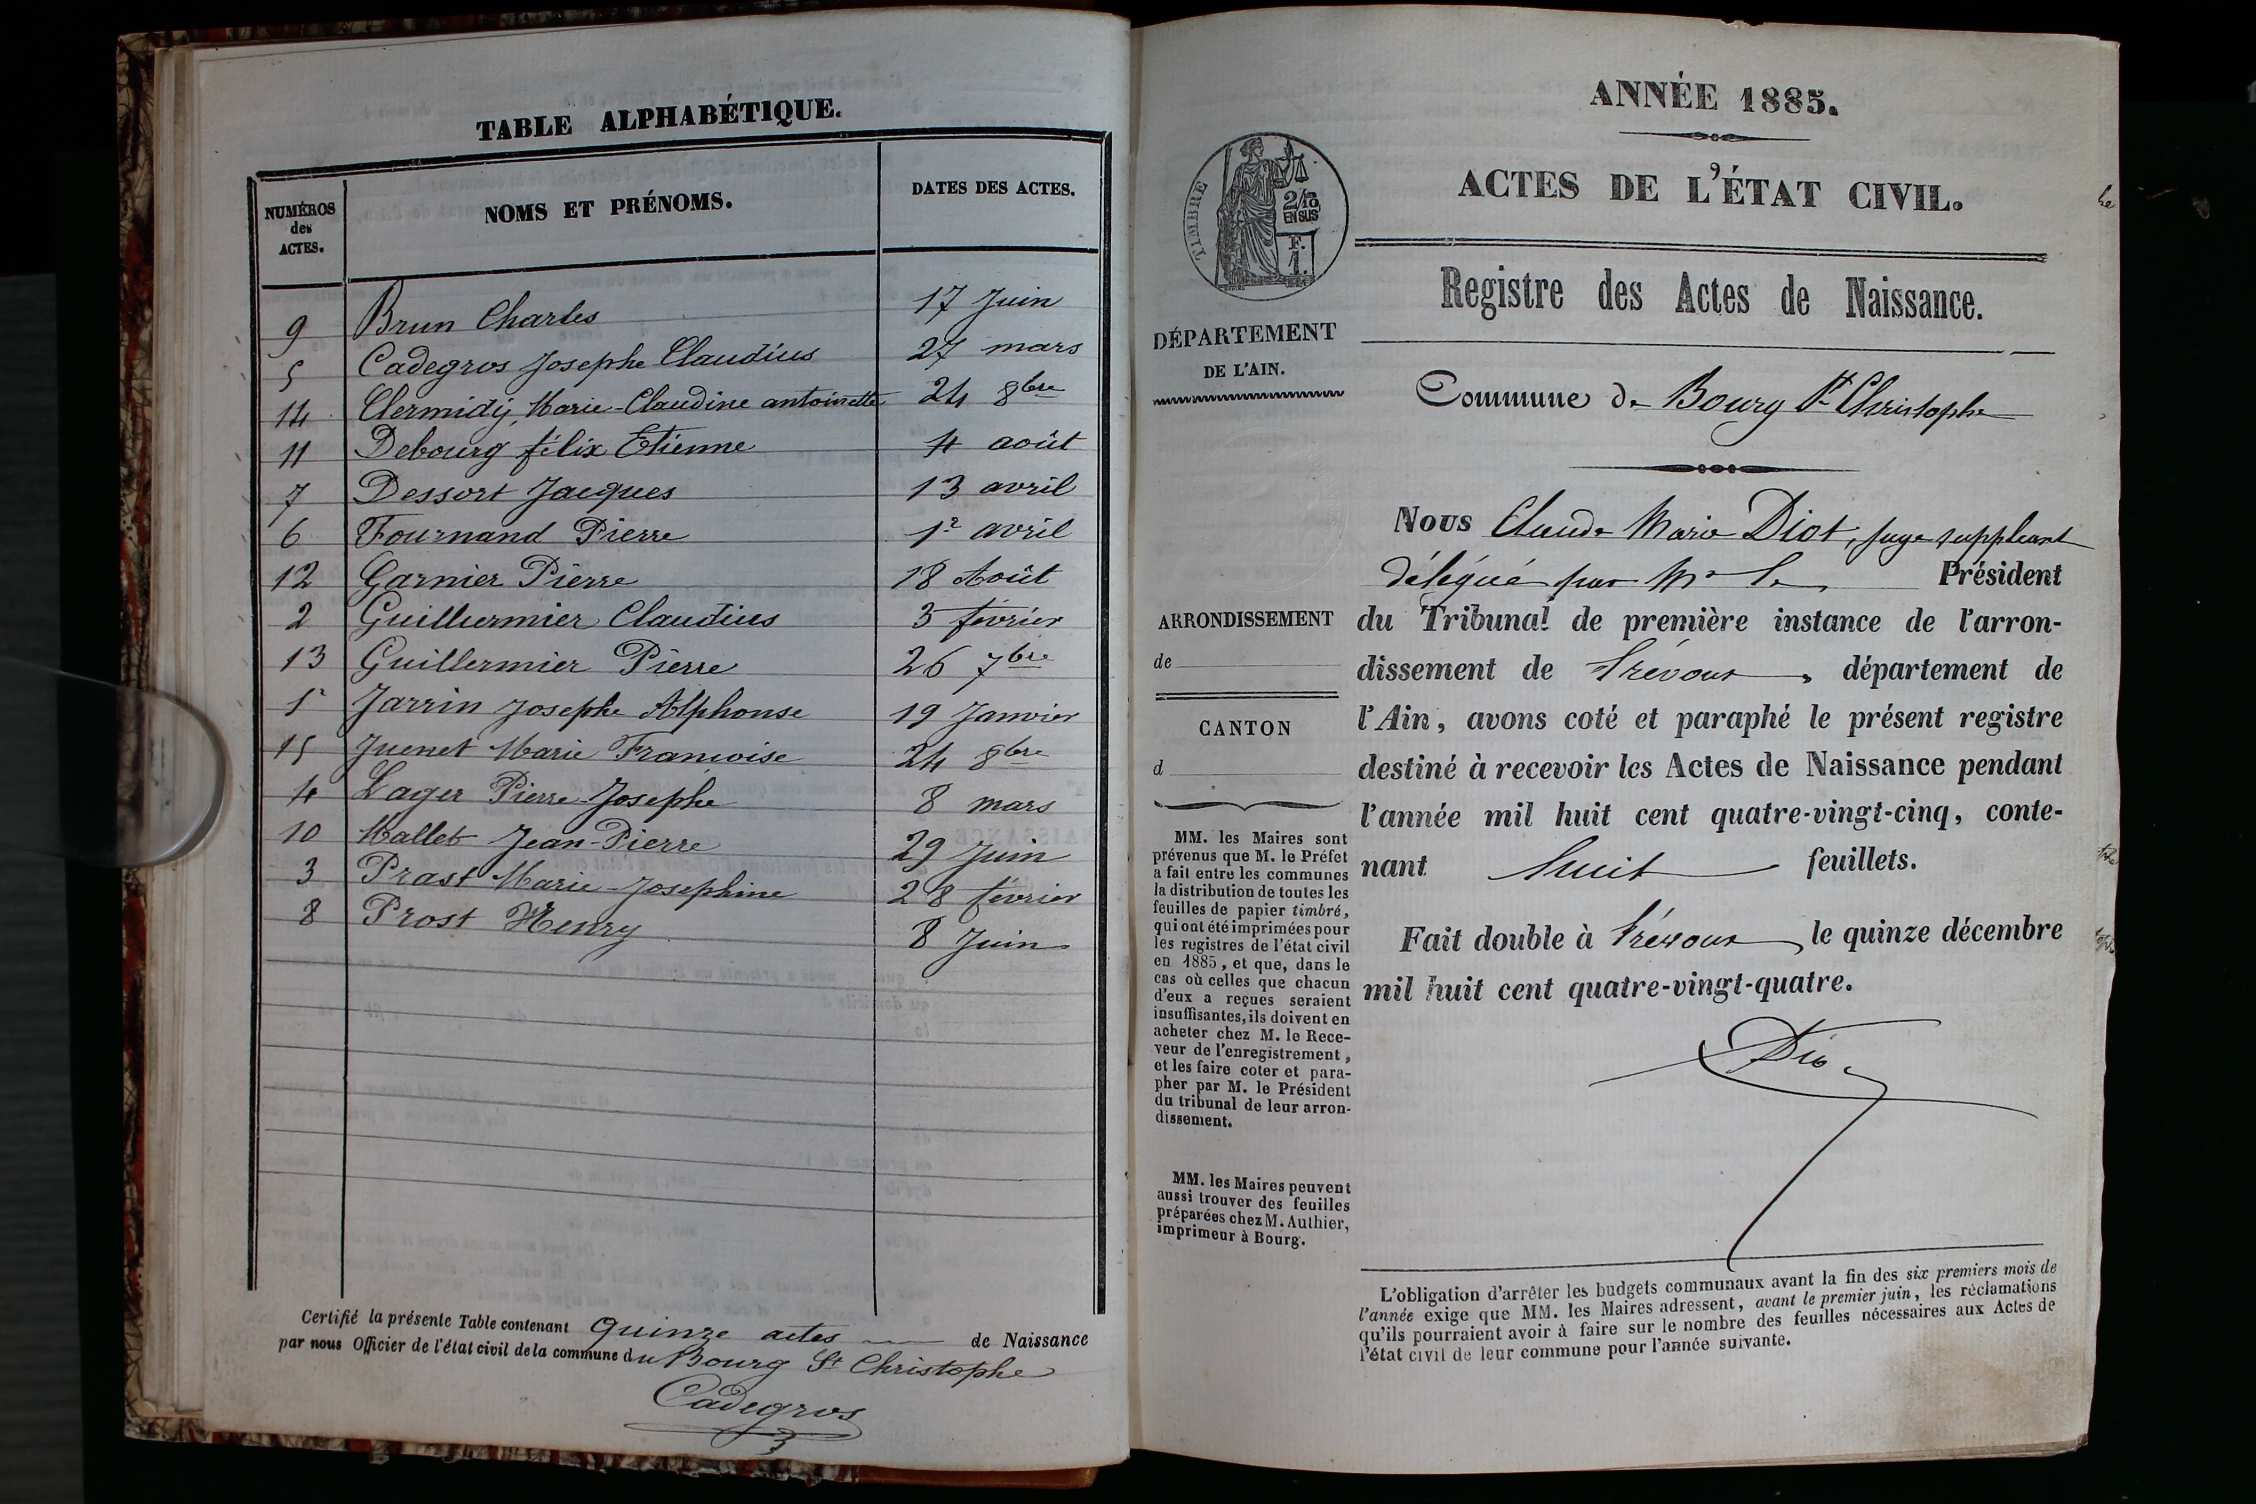 TABLE ALPHABÉTIQUE.
NUMÉROS des ACTES. NOMS ET PRÉNOMS. DATES DES ACTES.
9 Brun Charles 17 Juin
5 Cadegros Josephe Claudius 27 mars
14 Clermidy, Marie-Claudine antoinette 24 8bre
11 Debourg félix Etienne 4 août
7 Dessort Jacques 13 avril
6 Fournand Pierre 1r avril
12 Garnier Pierre 18 Août
2 Guillermier Claudius 3 février
13 Guillermier Pierre 26 7bre
1r Jarrin Josephe Alphonse 19 Janvier
15 Juenet Marie Francoise 24 8bre
4 Lager Pierre-Josephe 8 mars
10 Mallet Jean-Pierre 29 Juin
3 Prast Marie-Josephine 28 février
8 Prost Henry 8 Juin
Certifié la présente Table contenant quinze actes de Naissance
par nous Officier de l'état civil de la commune du Bourg St Christophe
Cadegros
ANNÉE 1885.
ACTES DE L'ÉTAT CIVIL.
TIMBRE
2/10
EN SUS
F.
1.
Registre des Actes de Naissance.
DÉPARTEMENT
DE L'AIN.
Commune de Bourg St Christophe
Nous Claude Marie Diot, juge suppléant
délégué par Mr le Président
du Tribunal de première instance de l'arron-
dissement de Trévoux, département de
l'Ain, avons coté et paraphé le présent registre
destiné à recevoir les Actes de Naissance pendant
l'année mil huit cent quatre-vingt-cinq, conte-
nant huit feuillets.
Fait double à Trévoux, le quinze décembre
mil huit cent quatre-vingt-quatre.
Diot
ARRONDISSEMENT
de
CANTON
d
MM. les Maires sont
prévenus que M. le Préfet
a fait entre les communes
la distribution de toutes les
feuilles de papier timbré,
qui ont été imprimées pour
les registres de l'état civil
en 1885, et que, dans le
cas où celles que chacun
d'eux a reçues seraient
insuffisantes, ils doivent en
acheter chez M. le Rece-
veur de l'enregistrement,
et les faire coter et para-
pher par M. le Président
du tribunal de leur arron-
dissement.
MM. les Maires peuvent
aussi trouver des feuilles
préparées chez M. Authier,
imprimeur à Bourg.
L'obligation d'arrêter les budgets communaux avant la fin des six premiers mois de
l'année exige que MM. les Maires adressent, avant le premier juin, les réclamations
qu'ils pourraient avoir à faire sur le nombre des feuilles nécessaires aux Actes de
l'état civil de leur commune pour l'année suivante.